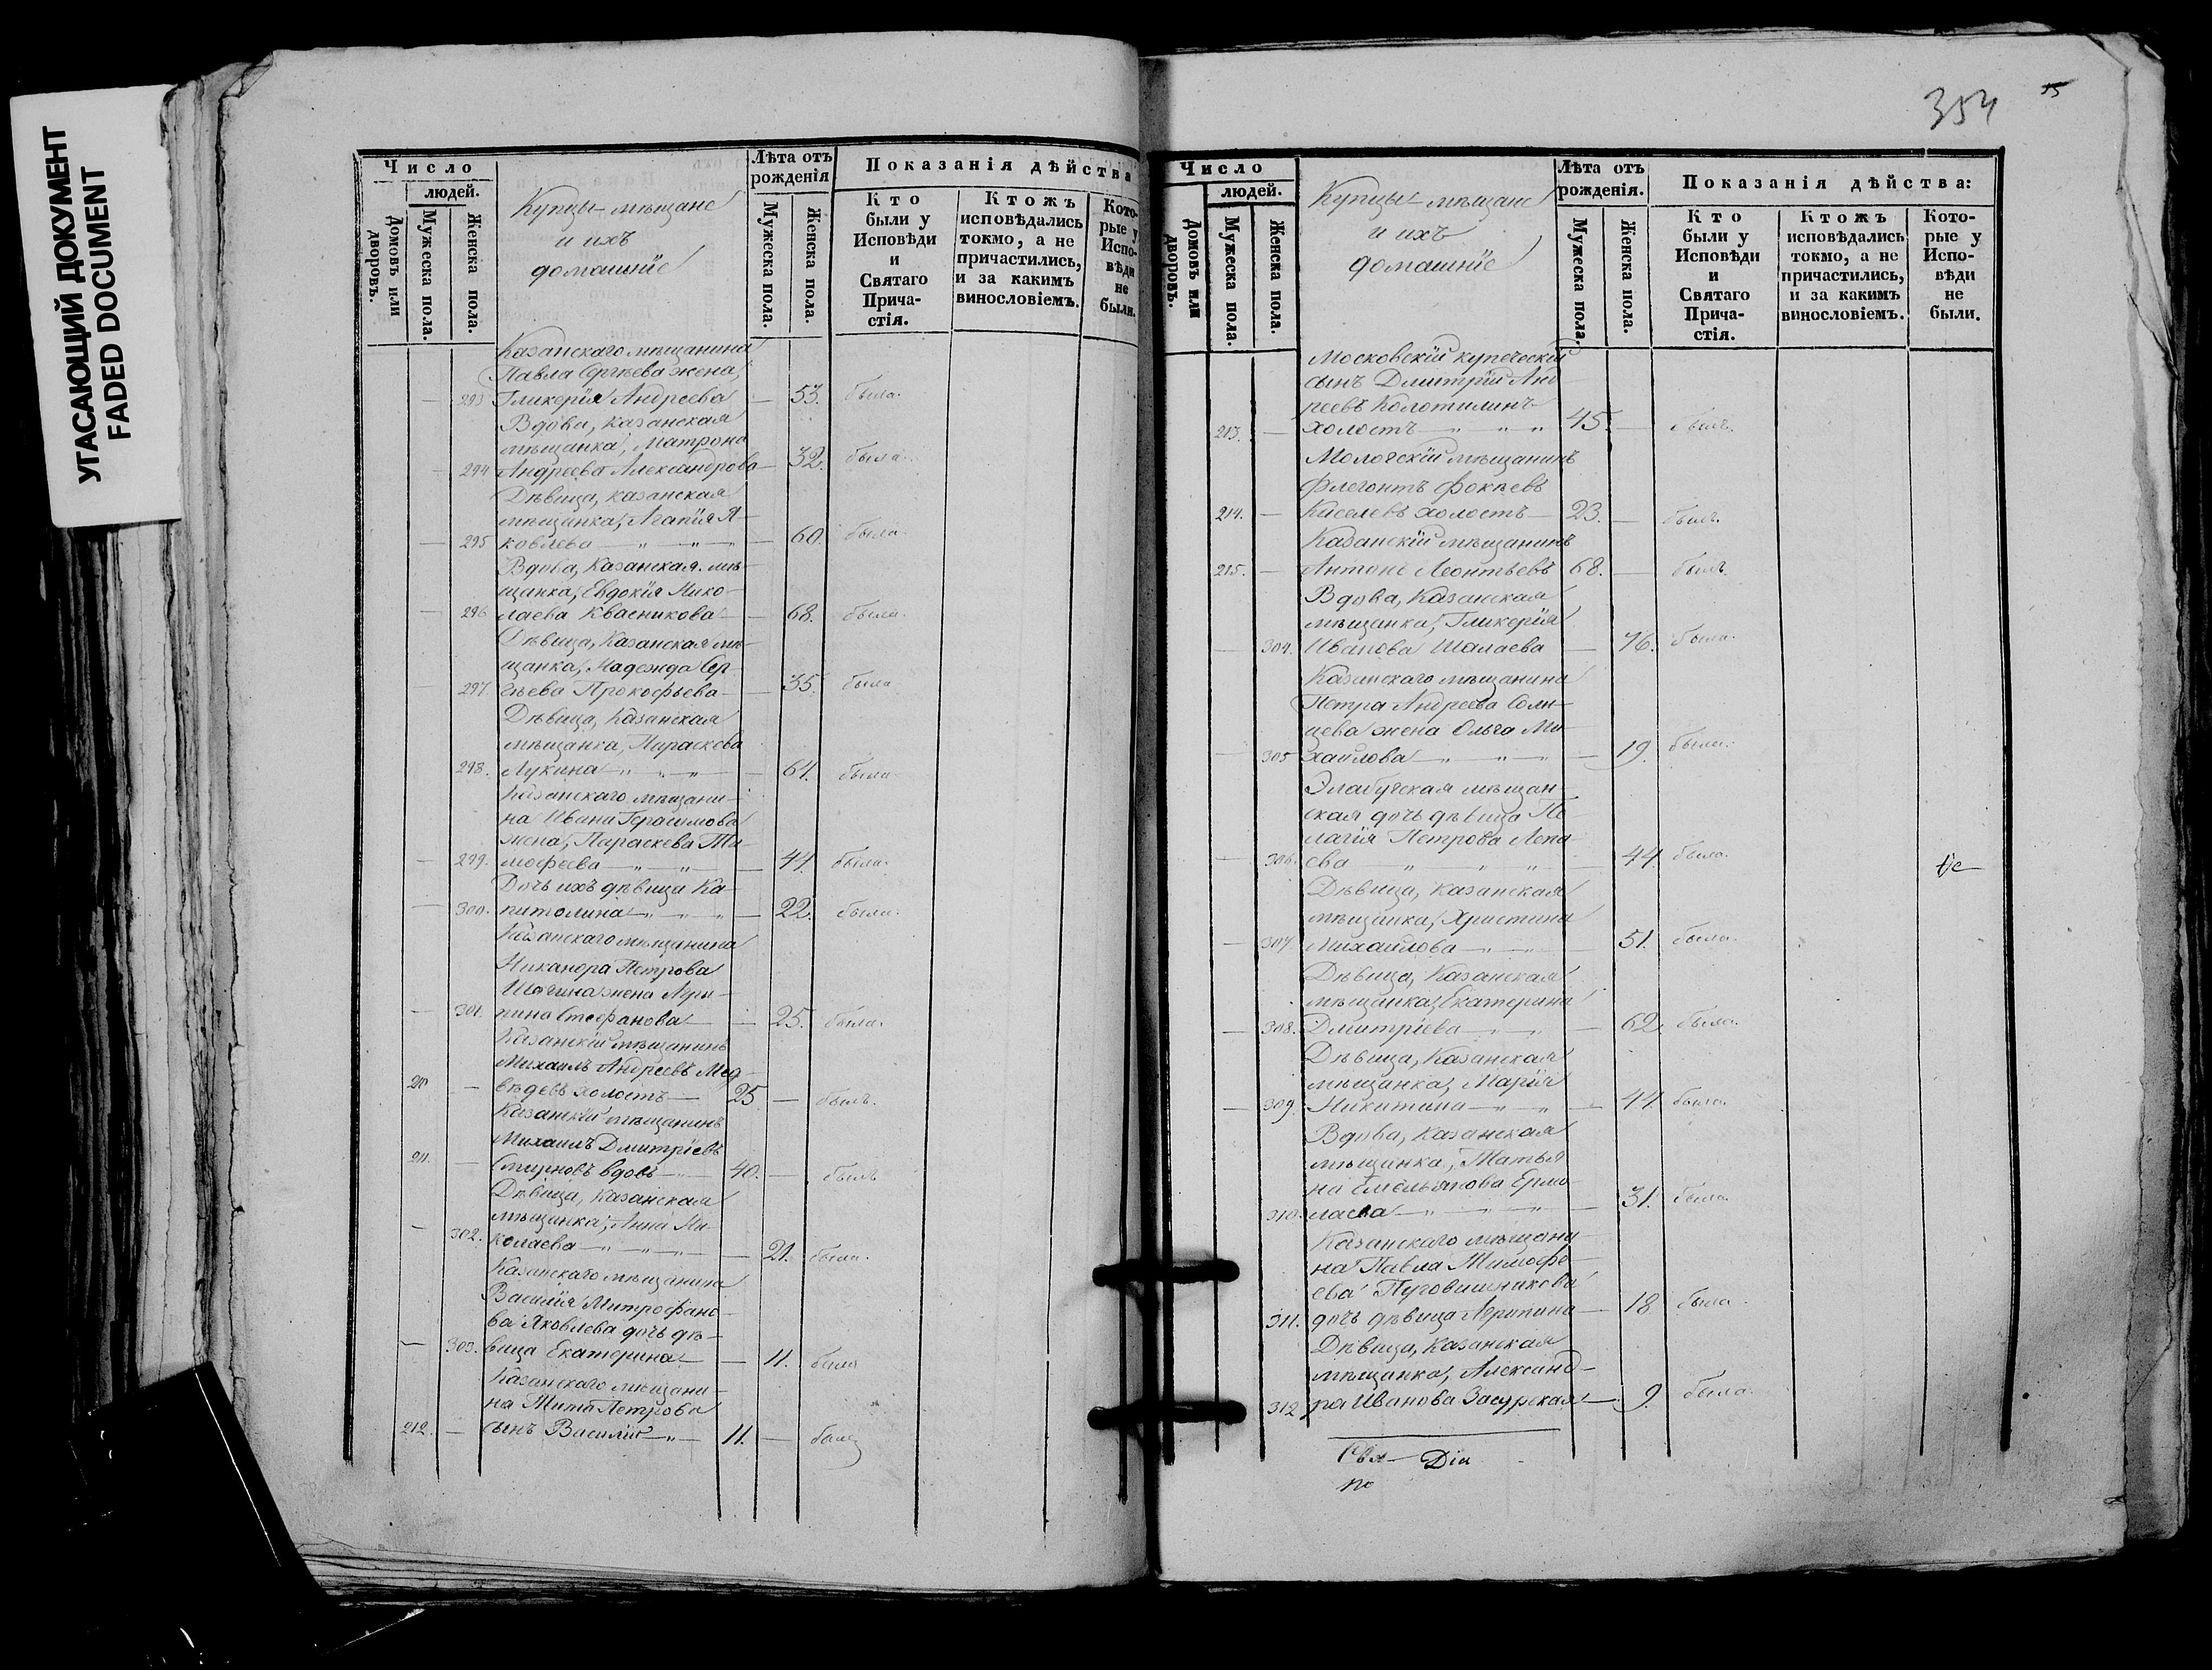 УГАСАЮЩИЙ ДОКУМЕНТ
FADED DOCUMENT
Число
людей.
Домовъ или дворовъ.
Мужеска пола.
Женска пола.
Купцы мѣщане
и ихъ
домашніе
Лѣта отъ рожденія
Мужеска пола.
Женска пола.
Показанія дѣйства
Кто были у Исповѣди и Святаго Прича-стія.
Ктожъ исповѣдались токмо, а не причастились, и за какимъ винословіемъ.
Кото-рые у Испо-вѣди не были.
Казанскаго мѣщанина
Павла Сергѣева жена,
— 293 Гликерія Андреева — 53. была.
Вдова, Казанская
мѣщанка, Матрона
— 294 Андреева Александрова — 32. была.
Дѣвица, казанская
мѣщанка, Агапія Я-
— 295 ковлева — „ — „ — — 60. была.
Вдова, Казанская мѣ-
щанка, Евдокія Нико-
— 296 лаева Квасникова — — 68. была.
Дѣвица, Казанская мѣ-
щанка, Надежда Сер-
— 297. гѣева Прокофьева — — 35. была
Дѣвица, Казанская
мѣщанка, Параскева
298. Лукина — „ — „ — — 64. была
Казанскаго мѣщани-
на Ивана Герасимова
жена, Параскева Ти-
— 299. мофеева — „ — „ — — 44. была.
Дочь ихъ дѣвица Ка-
— 300. питолина — „ — „ — 22. была.
Казанскаго мѣщанина
Никанора Петрова
жена Агри-
— 301. пина Стефанова — — 25. была.
Казанскій мѣщанинъ
Михаилъ Андреевъ Мед-
210 — вѣдевъ холостъ — 25 — былъ.
Казанскій мѣщанинъ
Михаилъ Дмитріевъ
211. — Смирновъ вдовъ — 40. — былъ
Дѣвица, Казанская
мѣщанка, Анна Ни-
— 302. колаева — „ — „ — — 21. была.
Казанскаго мѣщанина
Василія Митрофано-
ва Яковлева дочь дѣ-
— 303. вица Екатерина — — 11. была
Казанскаго мѣщани-
на Тита Петрова
212. — сынъ Василій — „ — 11. — былъ
354
15
Число
людей.
Домовъ или дворовъ.
Мужеска пола.
Женска пола.
Купцы мѣщане
и ихъ
домашніе
Лѣта отъ рожденія.
Мужеска пола.
Женска пола.
Показанія дѣйства:
Кто были у Исповѣди и Святаго Прича-стія.
Ктожъ исповѣдались токмо, а не причастились, и за какимъ винословіемъ.
Кото-рые у Испо-вѣди не были.
Московскій купеческій
сынъ Дмитрій Анд-
реевъ Колотилинъ
213. — холостъ — „ „ „ 45. — былъ.
Мологскій мѣщанинъ
Флегонтъ Фокѣевъ
214. — Киселевъ холостъ — 23. — былъ.
Казанскій мѣщанинъ
215. — Антонъ Леонтьевъ 68. — былъ.
Вдова, Казанская
мѣщанка, Гликерія
— 304. Иванова Шалаева — 76. была.
Казанскаго мѣщанина
Петра Андреева Солн-
цева жена Ольга Ми-
— 305 хайлова — „ — „ — — 19. была.
Элабугская мѣщан-
ская дочь дѣвица Пе-
лагія Петрова Лепа
— 306. ева — „ „ „ — 44. была.
Дѣвица, Казанская
мѣщанка, Христина
— 307 Михайлова — „ — „ — 51. была.
Дѣвица, Казанская
мѣщанка, Екатерина
— 308. Дмитріева — „ — „ — 62 была.
Дѣвица, Казанская
мѣщанка, Марія
— 309. Никитина — „ — „ — 44. была.
Вдова, Казанская
мѣщанка, Татья-
на Емельянова Ермо-
310. лаева — „ — „ — 31. была.
Казанскаго мѣщани-
на Павла Тимофе-
ева Пуговишникова
311. дочь дѣвица Агрипина — 18 была.
Дѣвица, Казанская
мѣщанка, Александ-
312 ра Иванова Засурская — 9. была.
Свя- Діа